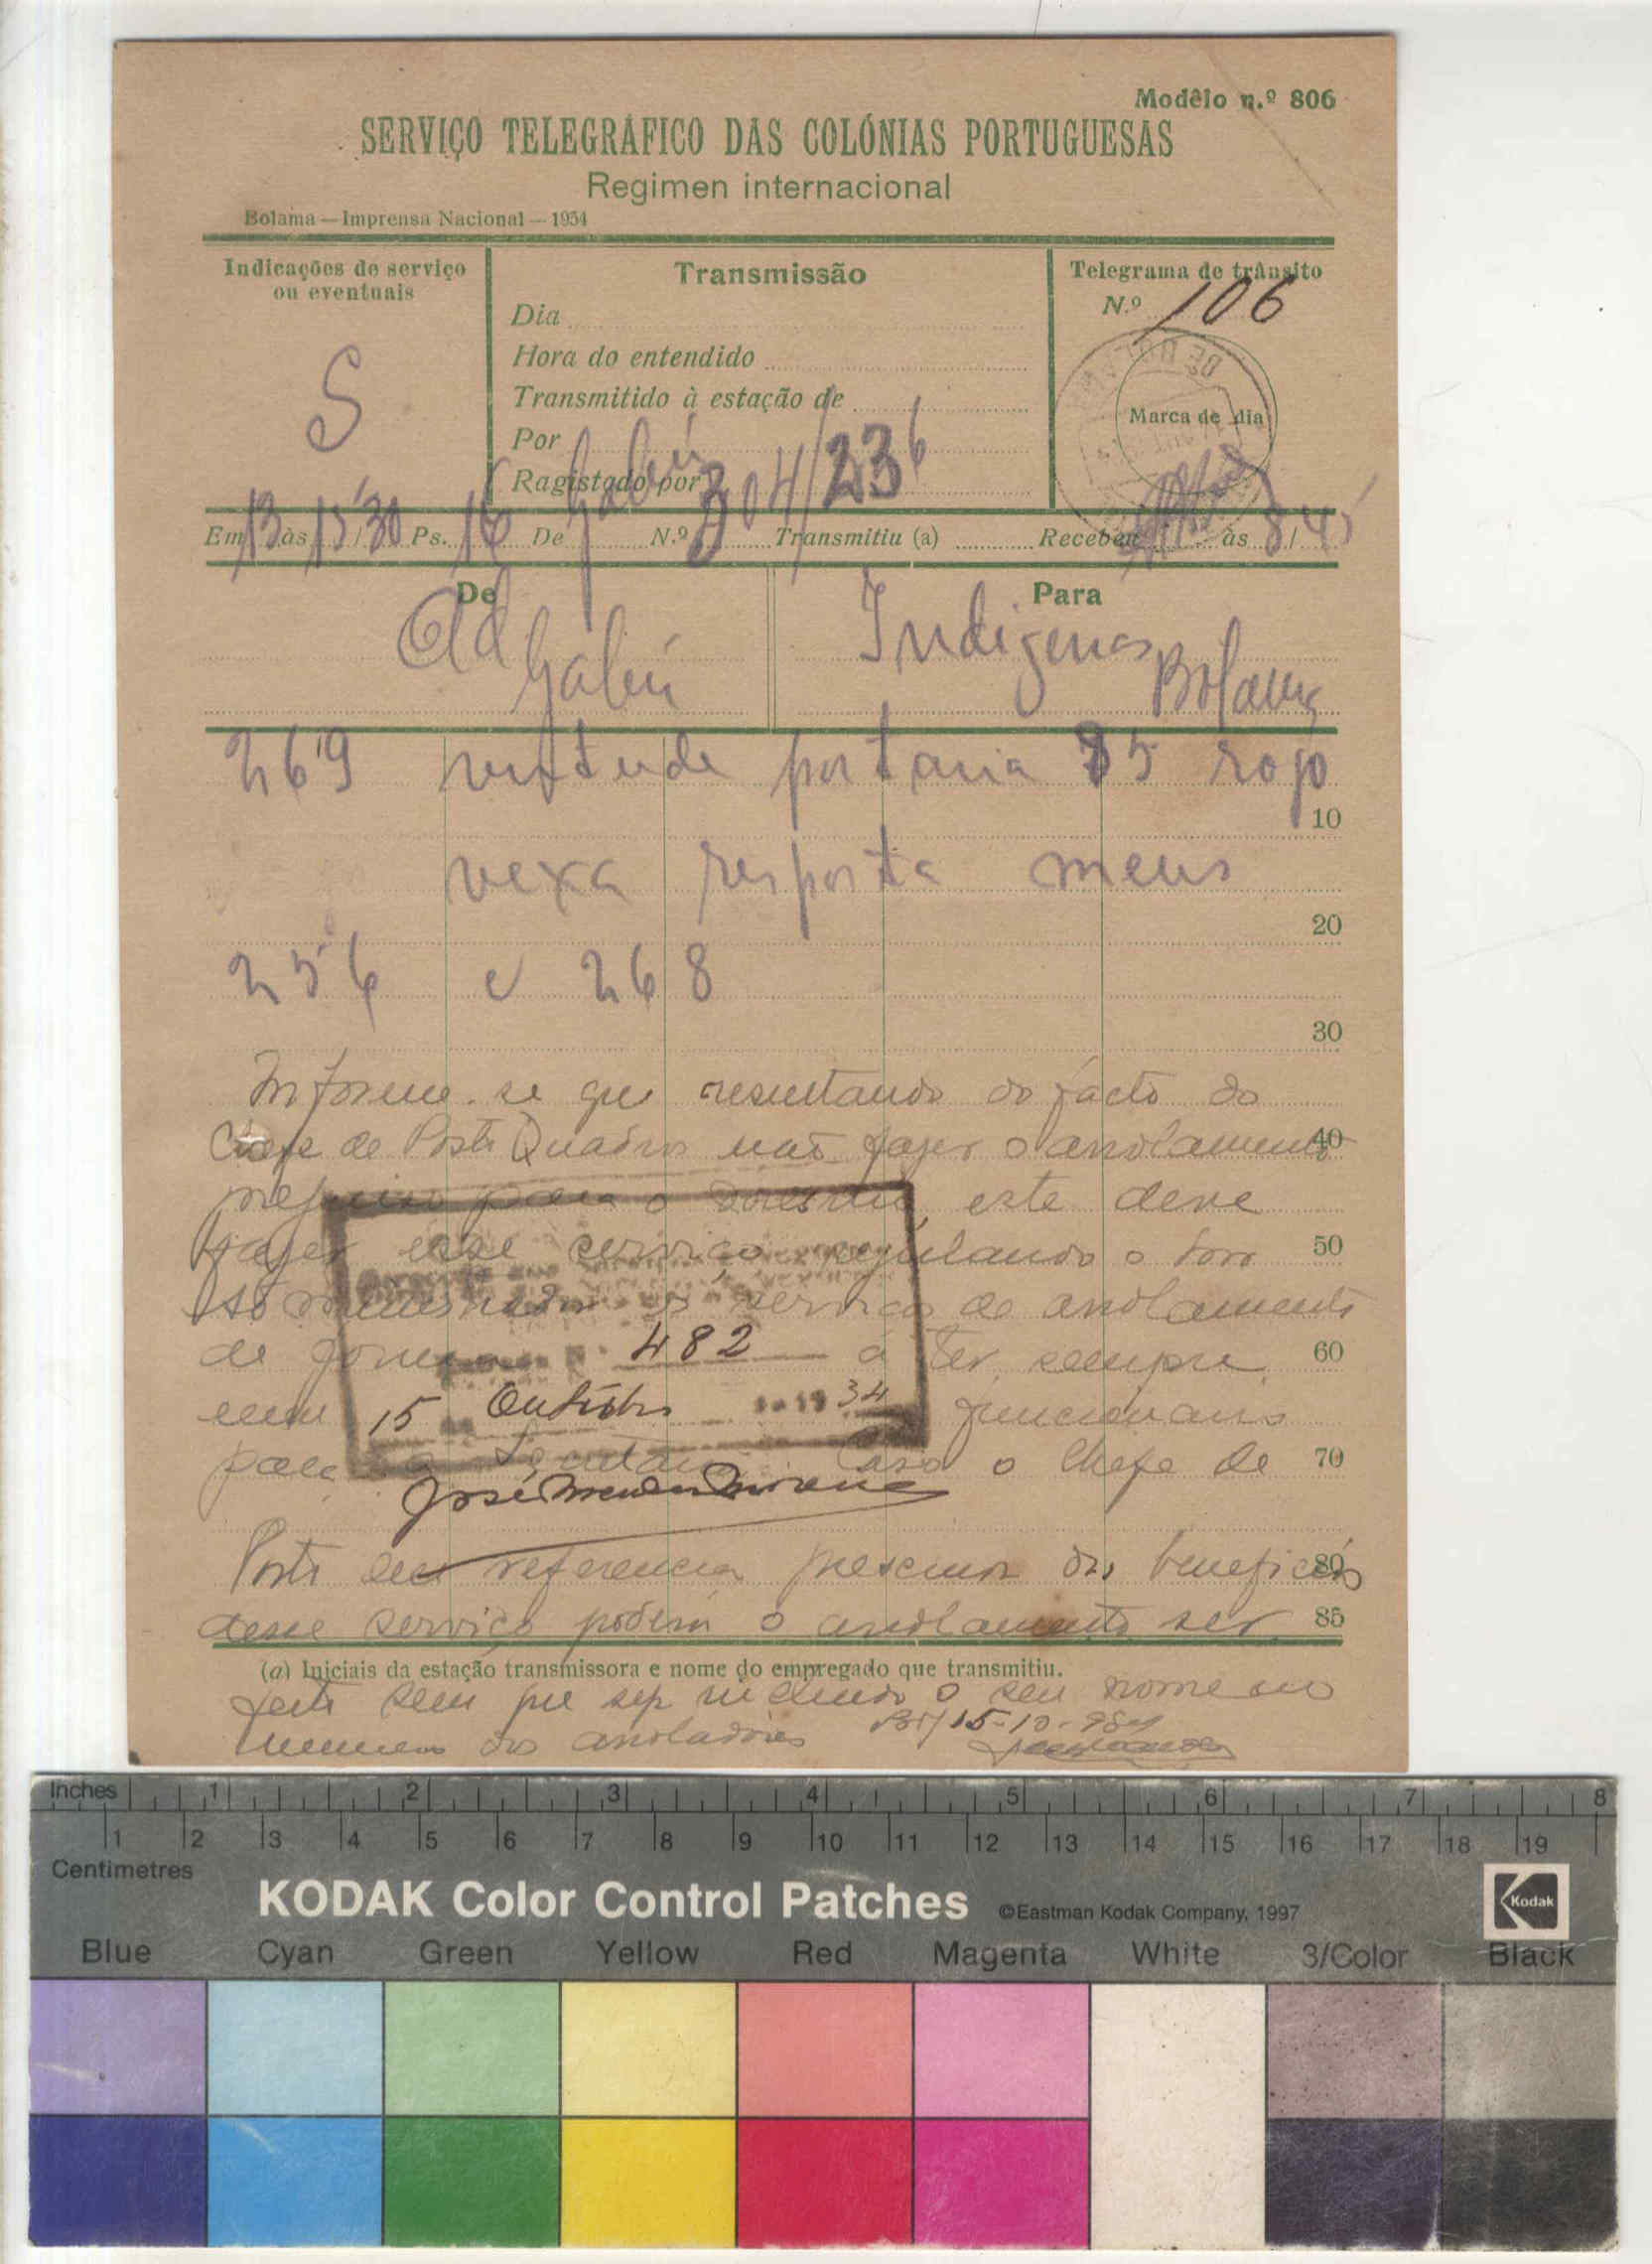 Modêlo n.º 806
SERVIÇO TELEGRÁFICO DAS COLÓNIAS PORTUGUESAS
Regimen internacional
Bolama — Imprensa Nacional — 1934
Indicações de serviço
ou eventuais
S
Transmissão
Dia
Hora do entendido
Transmitido à estação de
Por
Ragistado por
Telegrama de trânsito
N.º 106
Marca de dia
Em 13 às 15/30 Ps. 16 De Gabú N.º 304/236 Transmitiu (a) Recebeu às 8/45
De
Gabú
Para
Indigenas
Bolama
269 portaria 35 rogo
10
vexa resposta meus
20
256 e 268
30
Informe-se que resultando do facto do
Chefe de Posto Quadros não fazer o arrolamento
40
para o este deve
fazer esse serviço o
50
serviço de arrolamento
de 482 a ter sempre
60
em 15 Outubro 1934 funcionario
para Caso o Chefe de
70
José
Posto em referencia prescinda dos beneficios
80
desse serviço poderá o arrolamento ser
85
(a) Iniciais da estação transmissora e nome do empregado que transmitiu.
feito sem que seja incluido o seu nome no
numero dos arroladores 15-10-934
Inches 1 2 3 4 5 6 7 8
1 2 3 4 5 6 7 8 9 10 11 12 13 14 15 16 17 18 19
Centimetres
KODAK Color Control Patches
©Eastman Kodak Company, 1997
Kodak
Blue Cyan Green Yellow Red Magenta White 3/Color Black